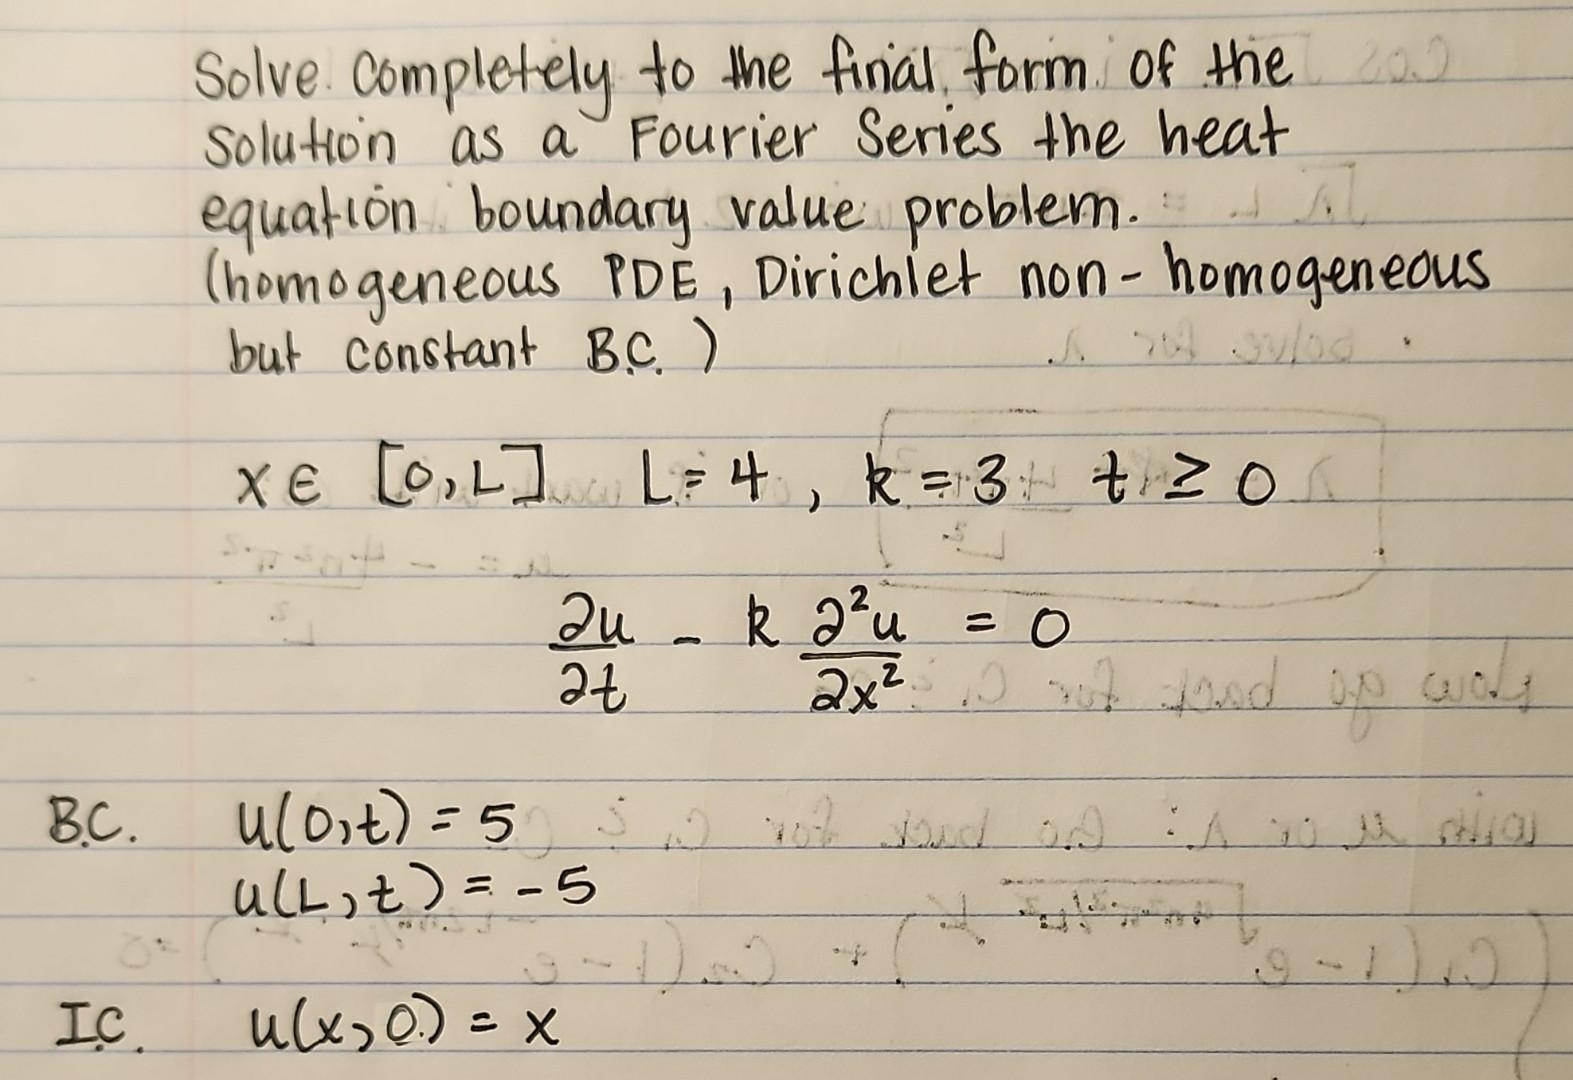 Solve completely to the final form of the
solution as a Fourier Series the heat
equation boundary value problem.
(homogeneous PDE, Dirichlet non-homogeneous
but constant B.C.)
x ∈ [0,L] L = 4, k = 3 t ≥ 0
∂u/∂t - k ∂²u/∂x² = 0
B.C. u(0,t) = 5
u(L,t) = -5
I.C. u(x,0) = x